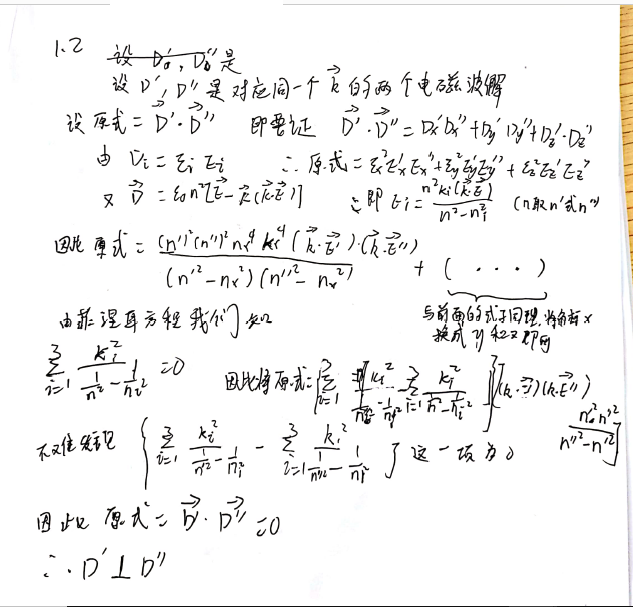 1.2 设 D₀', D₀'' 是
设 D', D'' 是对应同一个 k⃗ 的两个电磁波解
设原式 = D⃗'·D⃗'' 即要证 D⃗'·D⃗'' = Dx'Dx'' + Dy'Dy'' + Dz'·Dz''
由 Di = εi Ei ∴ 原式 = εx²Ex'Ex'' + εy²Ey'Ey'' + εz²Ez'Ez''
又 D⃗ = ε₀n²[E⃗ - k⃗(k⃗·E⃗)] ∴ 即 Ei = n²ki(k⃗·E⃗) / (n² - ni²) (n取n'或n'')
因此 原式 = (n')²(n'')² nx⁴ kx⁴ (k⃗·E⃗')·(k⃗·E⃗'') / (n'² - nx²)(n''² - nx²) + (· · ·)
与前面的式子同理,将所有x
换成 y 和 z 即可
由菲涅耳方程我们知
Σ(i=1→3) ki² / (1/n² - 1/ni²) = 0 因此将原式 =
不难发现 { Σ(i=1→3) ki² / (1/n'² - 1/ni²) - Σ(i=1→3) ki² / (1/n''² - 1/ni²) } 这一项为0
因此 原式 = D⃗'·D⃗'' = 0
∴ D' ⊥ D''